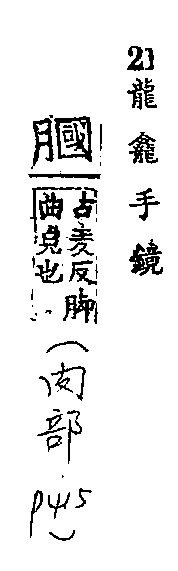 21 龍龕手鏡
膕
古麦反脚
曲皃也
(肉部 P415)